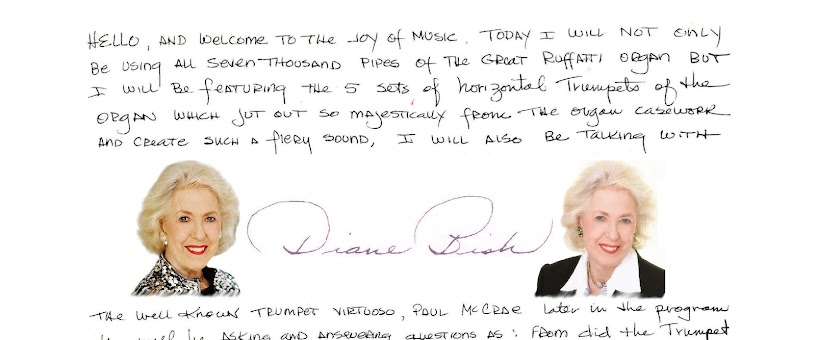 HELLO, AND WELCOME TO THE JOY OF MUSIC. TODAY I WILL NOT ONLY
BE USING ALL SEVEN THOUSAND PIPES OF THE GREAT RUFFATTI ORGAN BUT
I WILL BE FEATURING THE 5 SETS OF horizontal Trumpets of the
ORGAN WHICH JUT OUT SO MAJESTICALLY FROM THE ORGAN CASEWORK
AND CREATE SUCH A FIERY SOUND, I WILL ALSO BE TALKING WITH
Diane Bish
THE WELL KNOWN TRUMPET VIRTUOSO, PAUL MCCRAE later in the program
ASKING AND ANSWERING QUESTIONS AS: FROM did the Trumpet